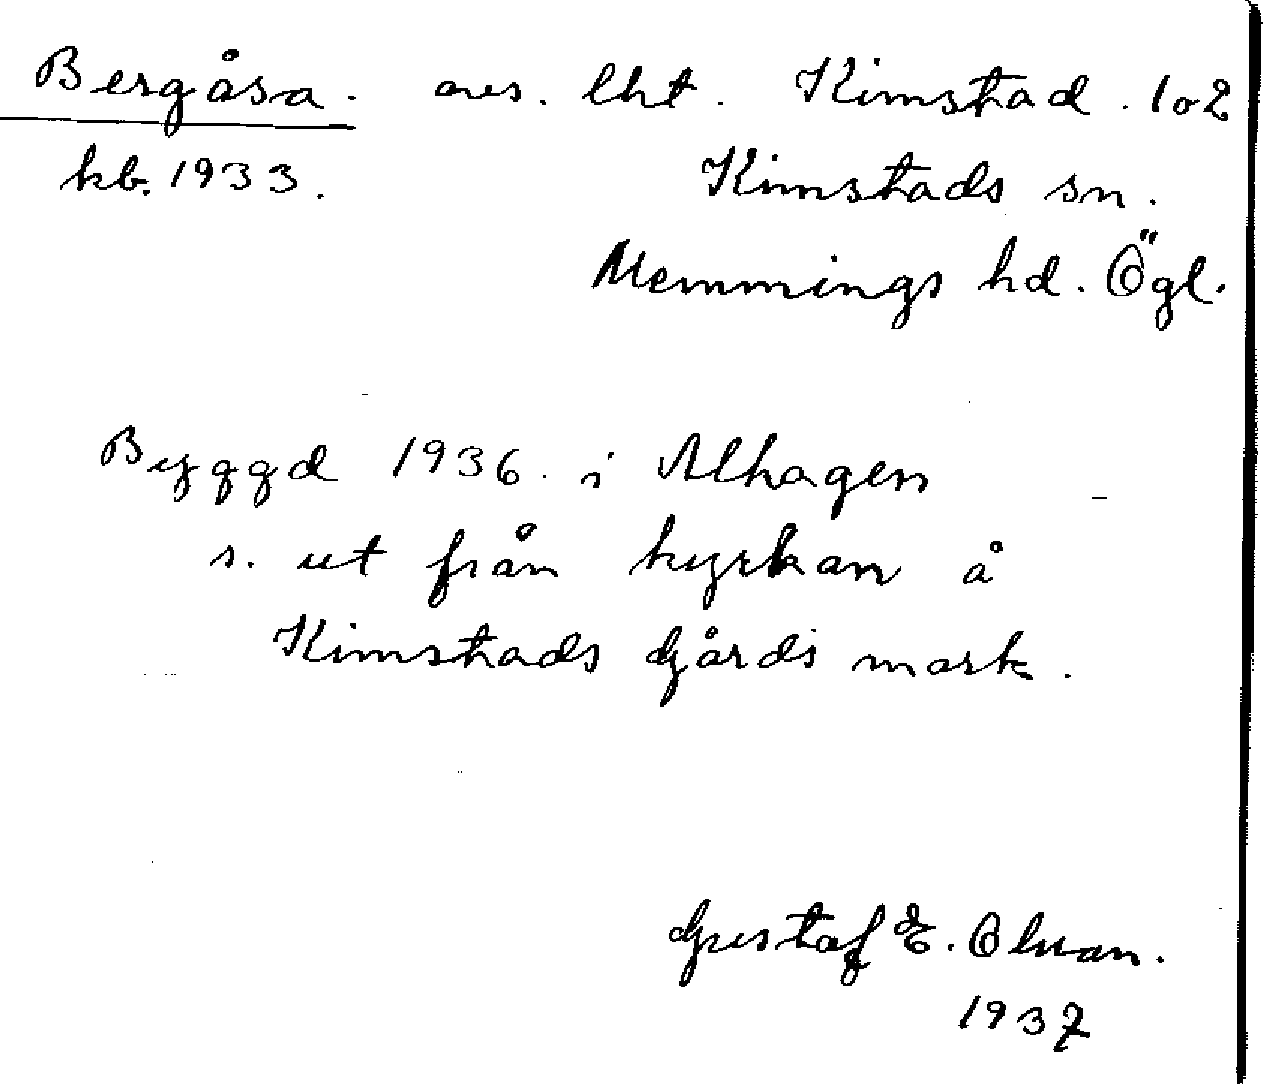 Bergåsa. avs. lht. Kimstad. 1 o 2
kb. 1933. Kimstads sn.
Memmings hd. Ögl.
Byggd 1936. i Alhagen
s. ut från kyrkan å
Kimstads Gårds mark.
Gustaf E. Olsson.
1937